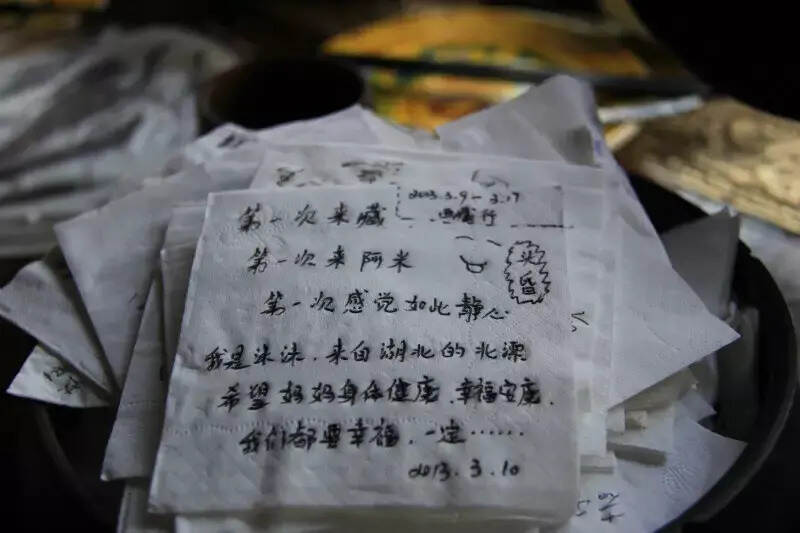 第一次来藏
2013.3.9-3.17
西藏行
第一次来阿米
头昏
第一次感觉如此静心
我是沫沫.来自湖北的北漂
希望妈妈身体健康.幸福安康.
我们都要幸福.一定……
2013.3.10